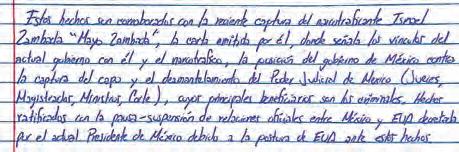 Estos hechos son corroborados con la reciente captura del narcotraficante Ismael
Zambada "Mayo Zambada", la carta emitida por él, donde señala los vínculos del
actual gobierno con él y el narcotráfico, la posición del gobierno de México contra
la captura del capo y el desmantelamiento del Poder Judicial de México (Jueces,
Magistrados, Ministros, Corte), cuyos principales beneficiarios son los criminales. Hechos
ratificados con la pausa-suspensión de relaciones oficiales entre México y EUA decretada
por el actual Presidente de México debido a la postura de EUA ante estos hechos.